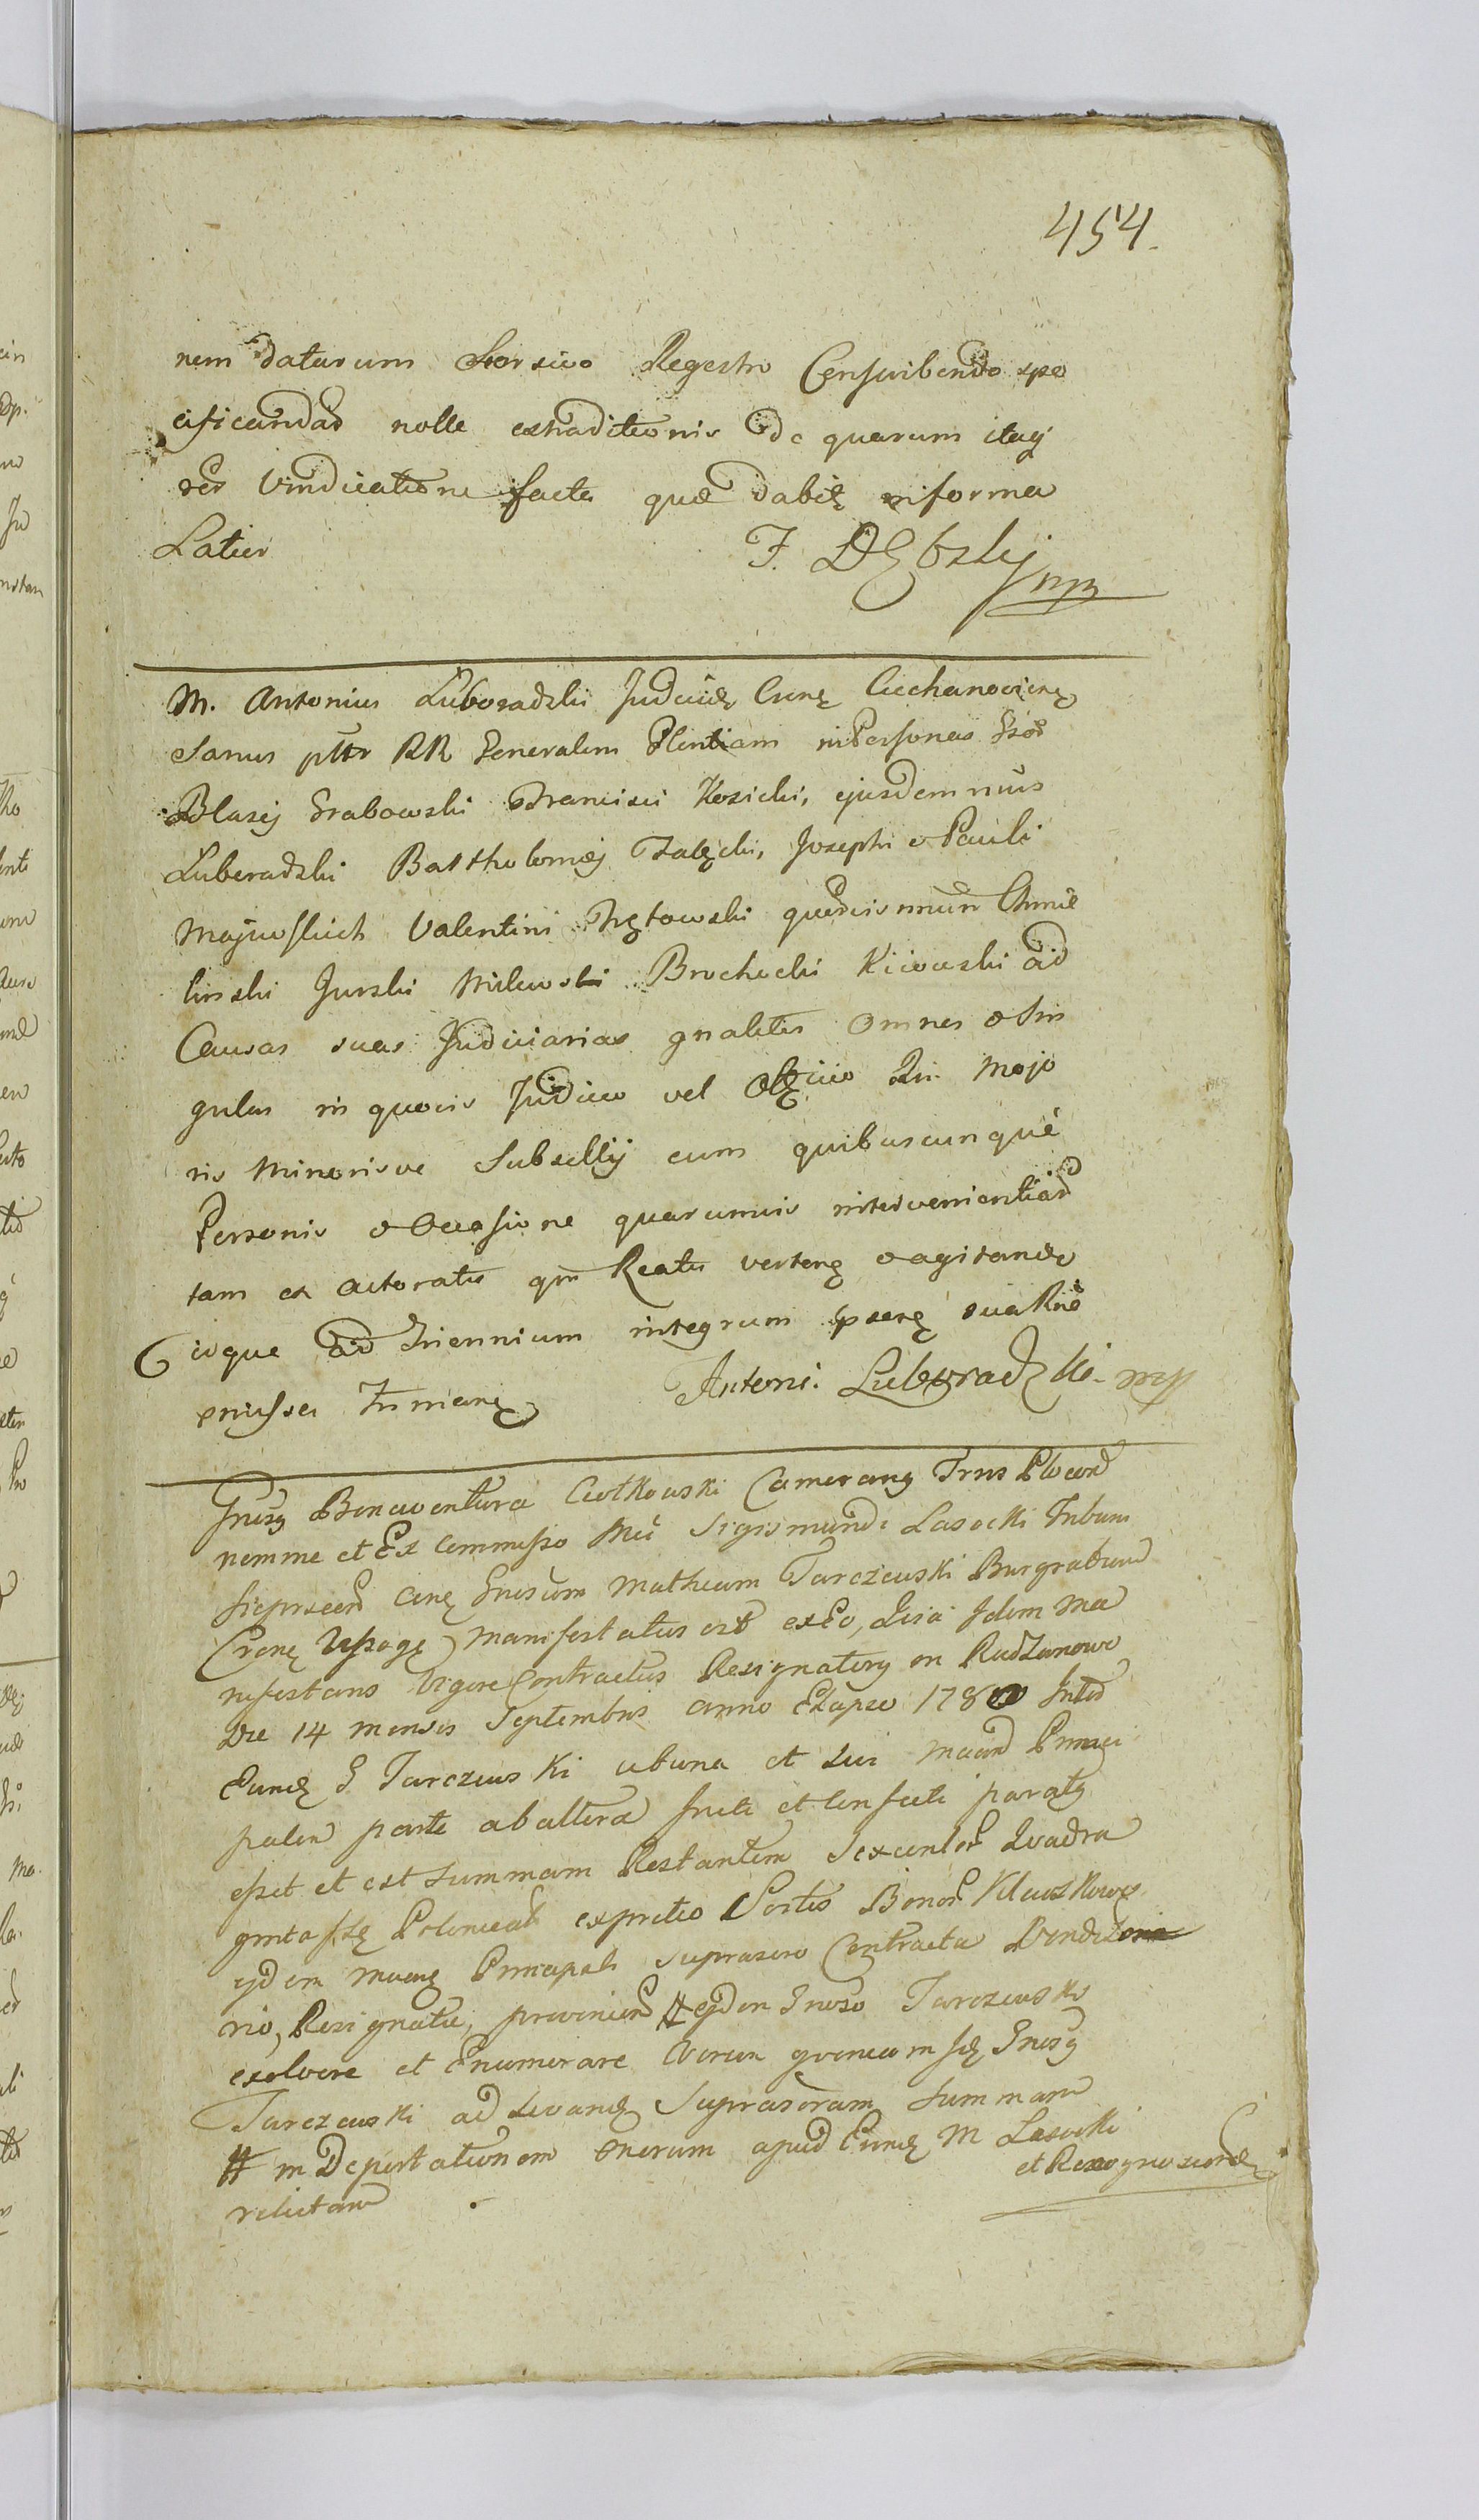 454.
nem datarum Seorsivo Regestro Conscribendo spe
cificandas nolle extraditionis de quarum itaq
rer Vindicatione facta quæ dabit informa
Latius F. Dębski mp
M. Antonius Luboradzki Judicii Ciechanoviens
sanus RR Generalem Plentiam in Personas
Blasij Grabowski Francisci Kosicki, ejusdem nunis
Luboradzki Bartholomæj Załęcki, Josephi & Pauli
Majewskich Valentini quemvis Chmie
linski Gurski Milewski Brochocki Kicowski ad
Causas suas Judiciarias gnaliter Omnes & Sin
gulas in quovis Judicio vel Officio Rni Majo
ris Minorisve Subsellij cum quibuscunque
Personis & Occasione quarumvis intervenientiar
tam ex actoratu qm Reatu verten & agitand
idque ad triennium integrum psens sua Rne
Antoni. Luboradzki mp
Bonaventura Ciołkowski Camerarius Trrus Plocen
nomine et Ex Commisso Mci Sigismundi Lasocki Tribuni
Gnosum Matheum Tarczewski Burgrabium
manifestatus est ex Eo, Quia Idem Ma
nifestans Vigore Contractus Resignatory in Radzanowo
Die 14 mensis Septembris anno Elapso 1780 Inter
Eund G Tarczewski ab una et Sui Mand Princi
palem parte ab altera Initi et Confecti paratus
esset et est Summam Restantem Sexcentor Quadra
ginta flor Polonical ex pretio Sortis Bonor
ejdem Mand Principali suprascro Contractu
rio, Resignatæ, provenien # ejdem Gnoso Tarczewski
exolvere et Enumerare Verum quoniam Gnosus
Tarczewski ad levand Suprascram Summam
# in Deportationem onerum apud Eund M Lasocki
relictam et Recognoscend